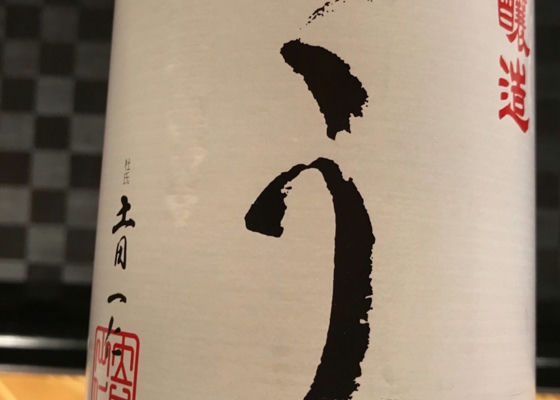 醸造
う
杜氏 土田一